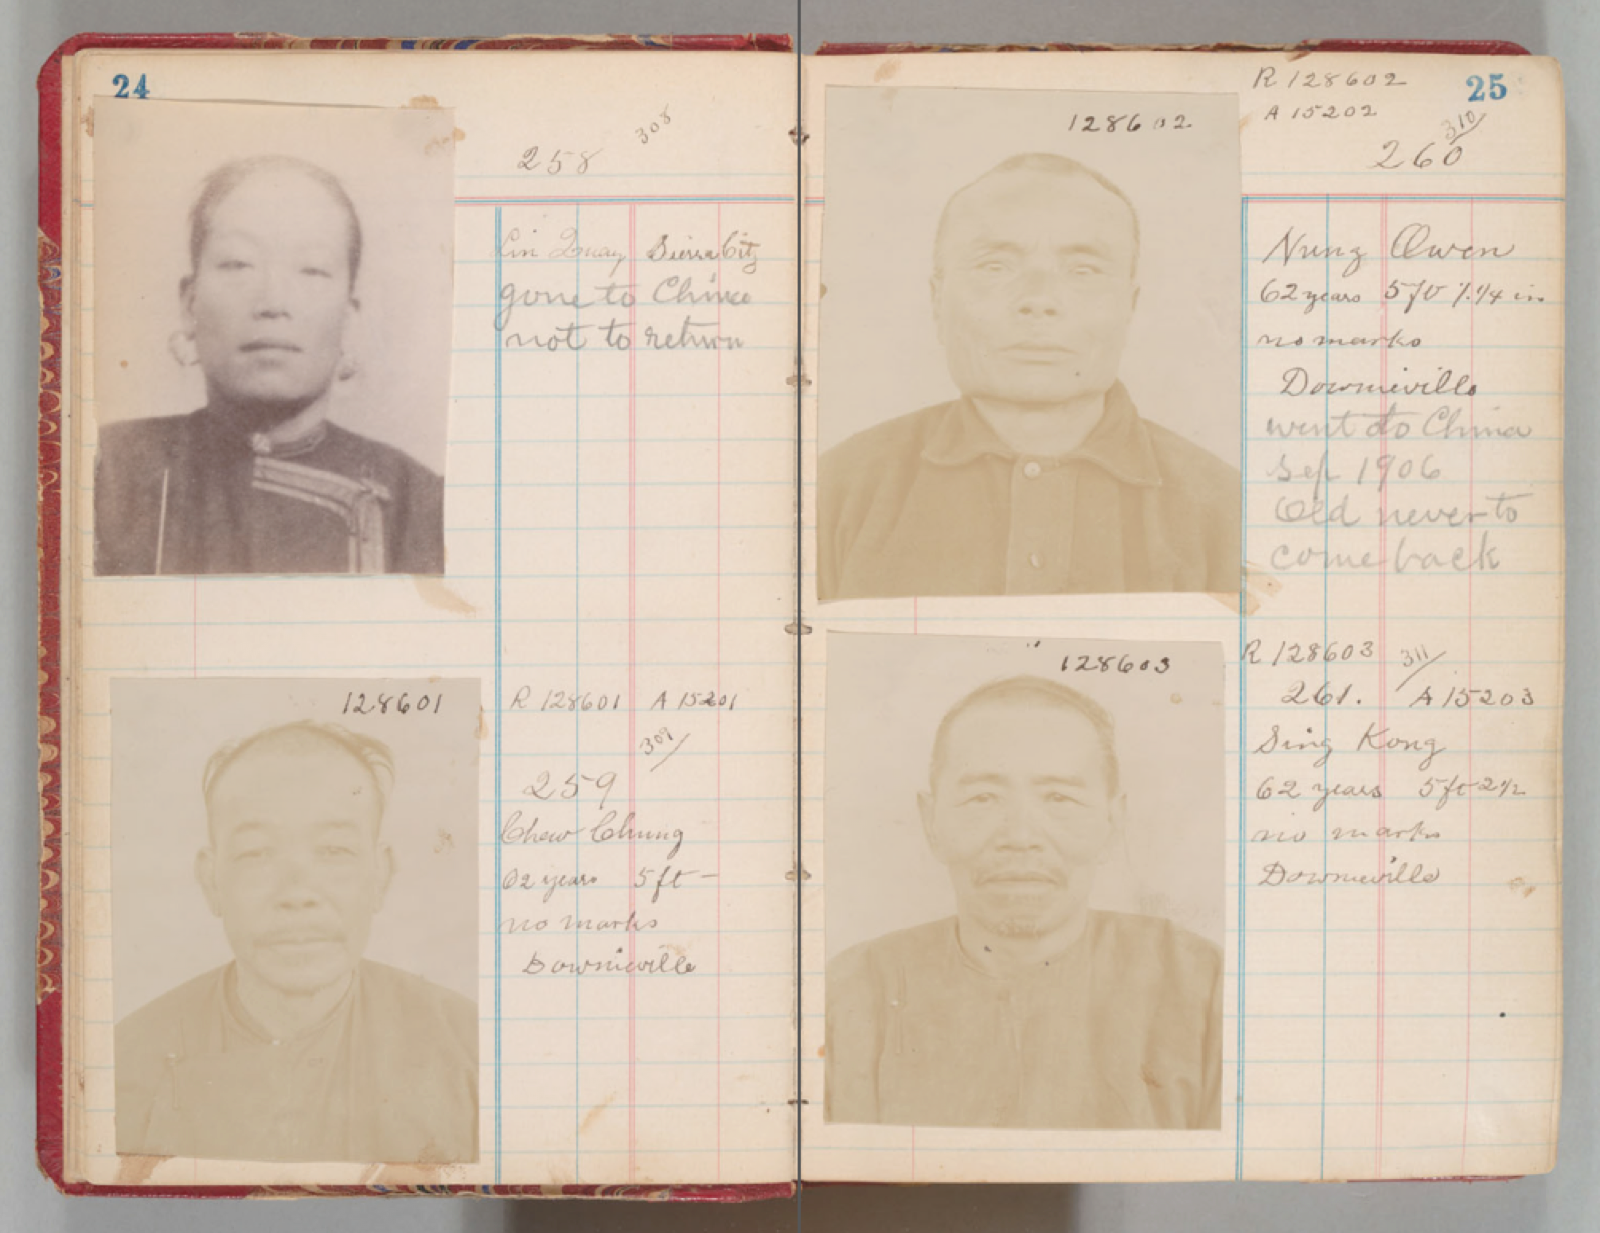 24
308
258
Lin Quay Sierra City
gone to China
not to return
128601
R 128601 A 15201
309/
259
Chew Chung
62 years 5ft –
no marks
Downieville
25
R 128602
A 15202
310/
260
128602
Nung Owen
62 years 5ft 1.1/4 in
no marks
Downieville
went to China
Sep 1906
Old never to
come back
128603
R 128603 311/
261. A 15203
Sing Kong
62 years 5ft 2 1/2
no marks
Downieville